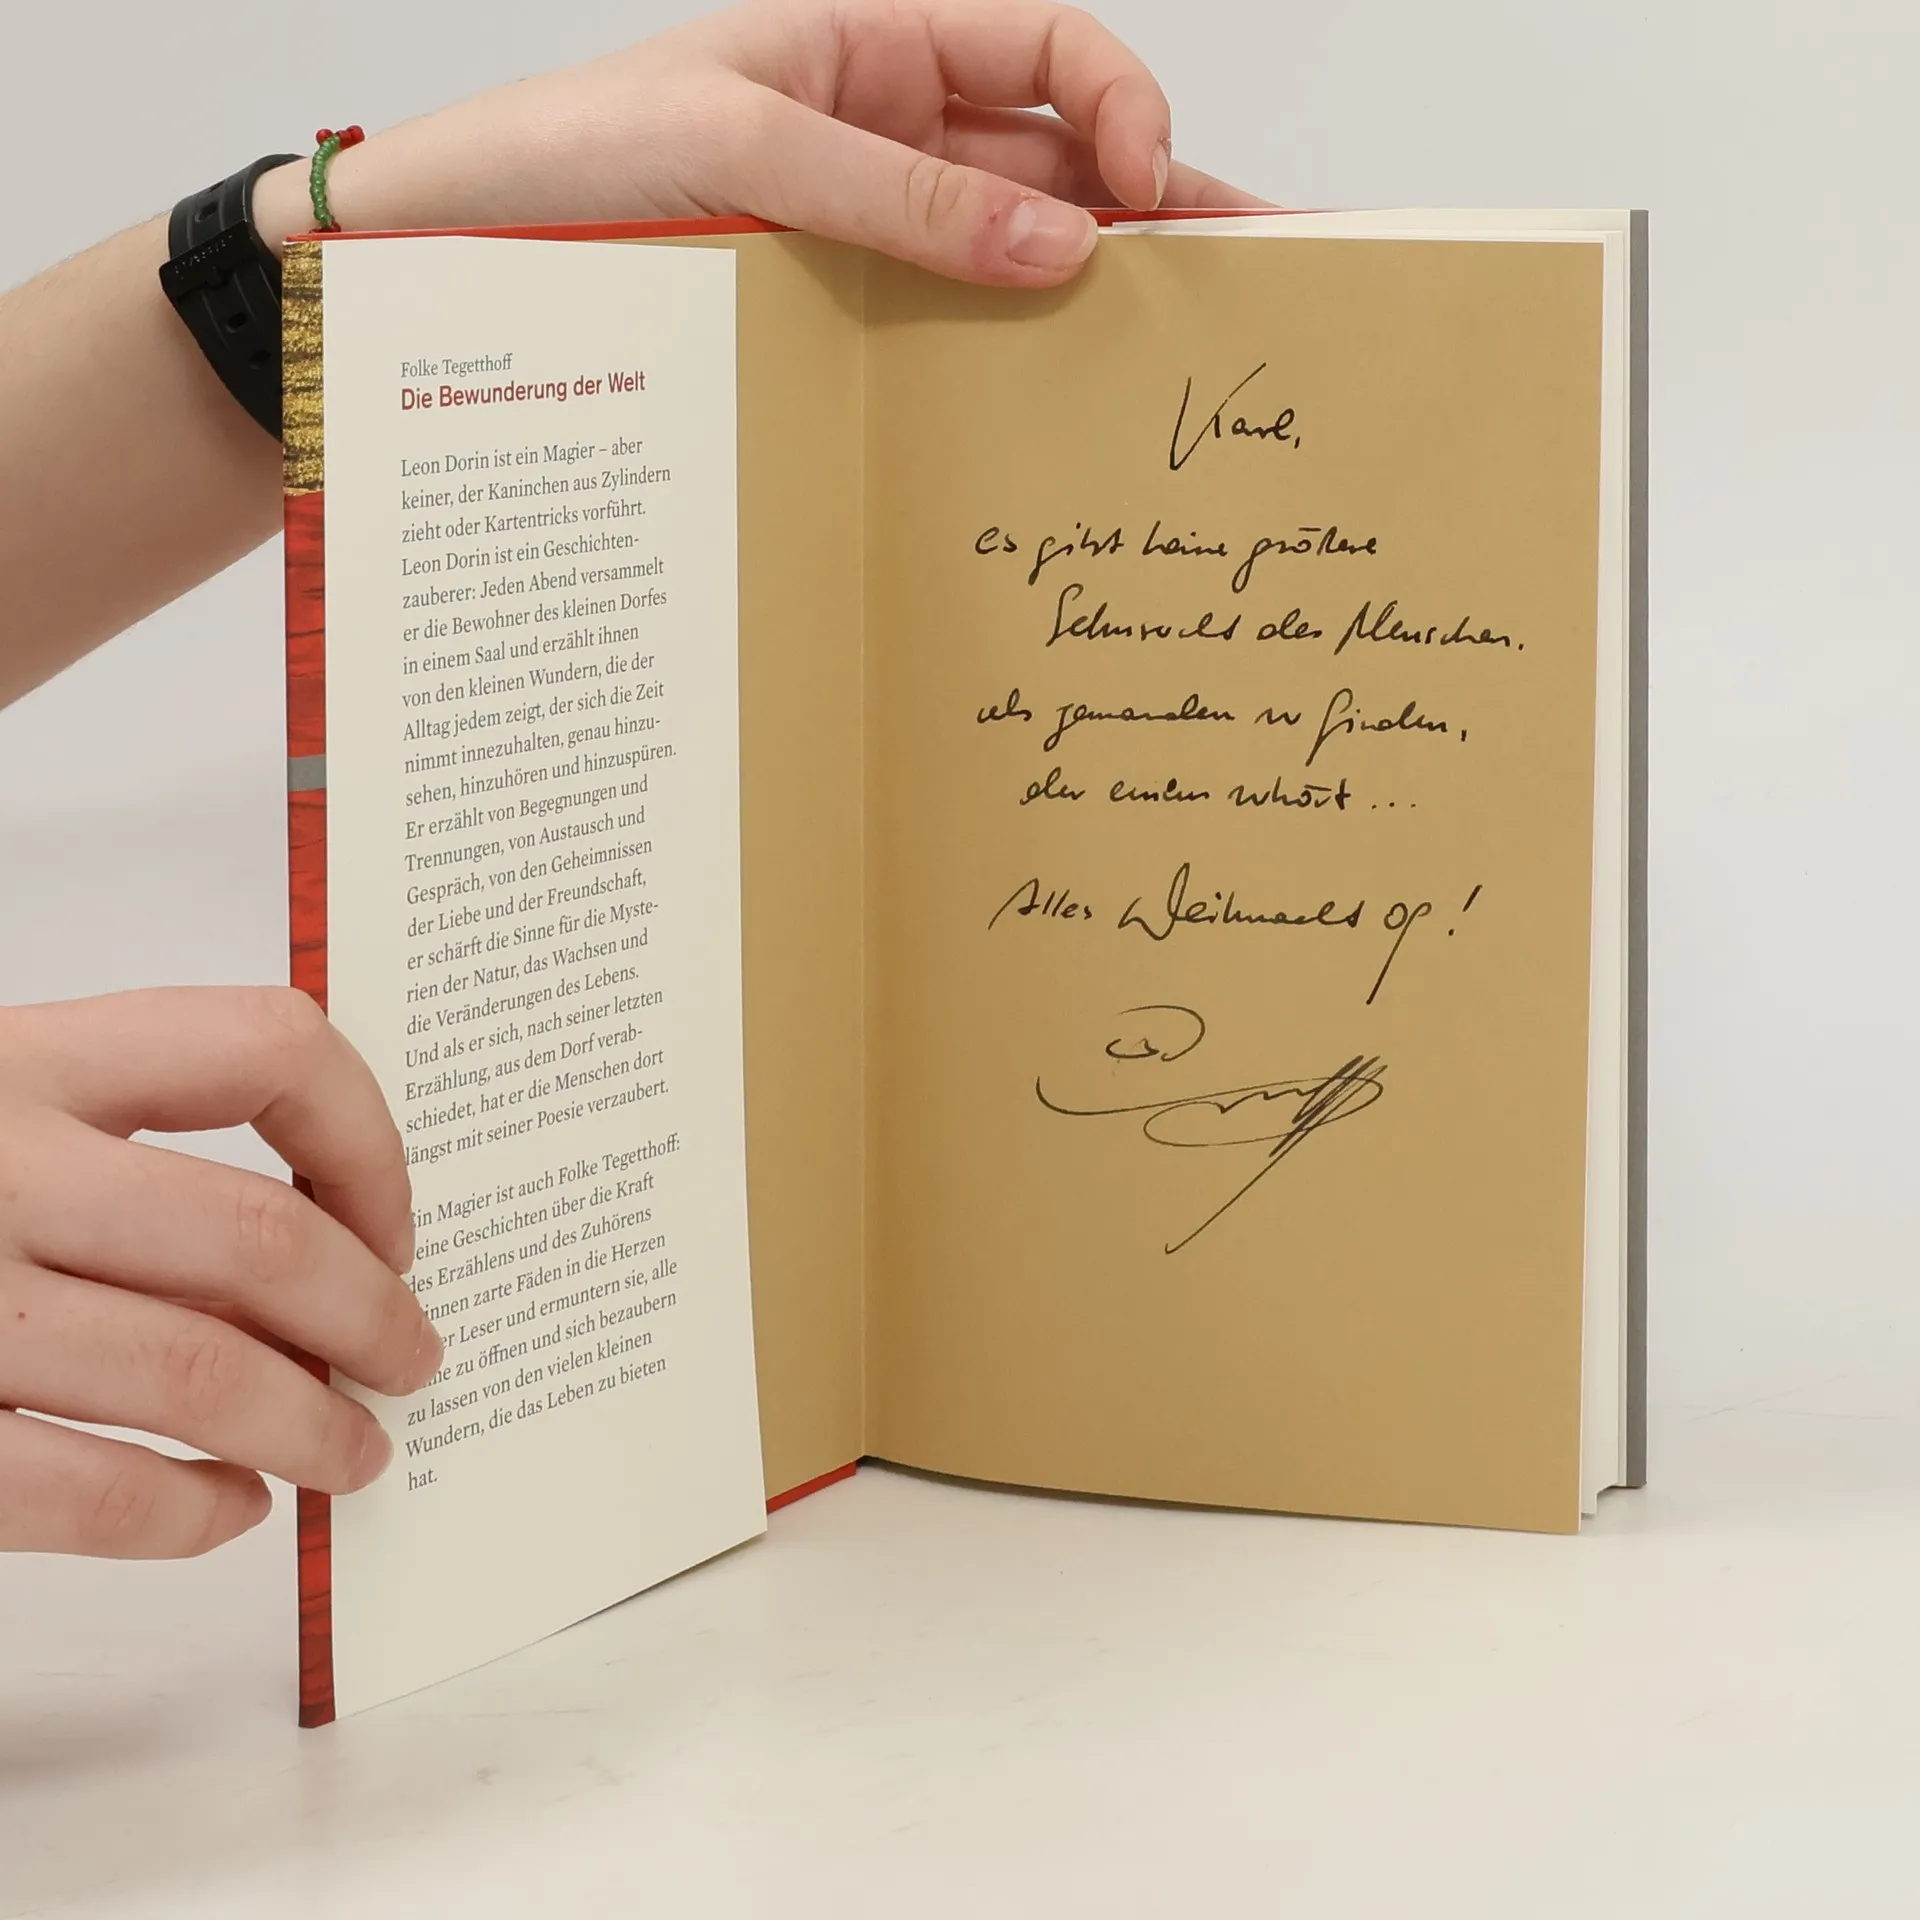 Folke Tegetthoff
Die Bewunderung der Welt
Leon Dorin ist ein Magier – aber
keiner, der Kaninchen aus Zylindern
zieht oder Kartentricks vorführt.
Leon Dorin ist ein Geschichten-
zauberer: Jeden Abend versammelt
er die Bewohner des kleinen Dorfes
in einem Saal und erzählt ihnen
von den kleinen Wundern, die der
Alltag jedem zeigt, der sich die Zeit
nimmt innezuhalten, genau hinzu-
sehen, hinzuhören und hinzuspüren.
Er erzählt von Begegnungen und
Trennungen, von Austausch und
Gespräch, von den Geheimnissen
der Liebe und der Freundschaft,
er schärft die Sinne für die Myste-
rien der Natur, das Wachsen und
die Veränderungen des Lebens.
Und als er sich, nach seiner letzten
Erzählung, aus dem Dorf verab-
schiedet, hat er die Menschen dort
längst mit seiner Poesie verzaubert.
in Magier ist auch Folke Tegetthoff:
eine Geschichten über die Kraft
des Erzählens und des Zuhörens
innen zarte Fäden in die Herzen
er Leser und ermuntern sie, alle
ne zu öffnen und sich bezaubern
zu lassen von den vielen kleinen
Wundern, die das Leben zu bieten
hat.
Karl,
es gibt keine größere
Sehnsucht des Menschen,
als jemanden zu finden,
der einem zuhört ...
Alles Weihnachts